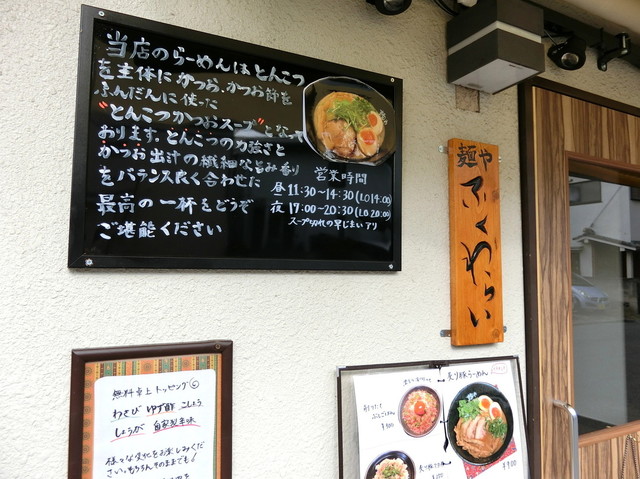 当店のらーめんはとんこつ
を主体にかつお、かつお節を
ふんだんに使った
"とんこつかつおスープ"となって
おります。とんこつの力強さと
かつお出汁の繊細な旨み香り
をバランス良く合わせた
最高の一杯をどうぞ
ご堪能ください
営業時間
昼11:30~14:30(LO14:00)
夜17:00~20:30(LO20:00)
スープ切れの早じまいアリ
麺や
ふくわらい
無料卓上トッピング
わさび ゆず酢 こしょう
しょうが 自家製辛味
様々な変化をお楽しみくだ
さい。もちろんそのままでも!
炙り豚らーめん
¥900